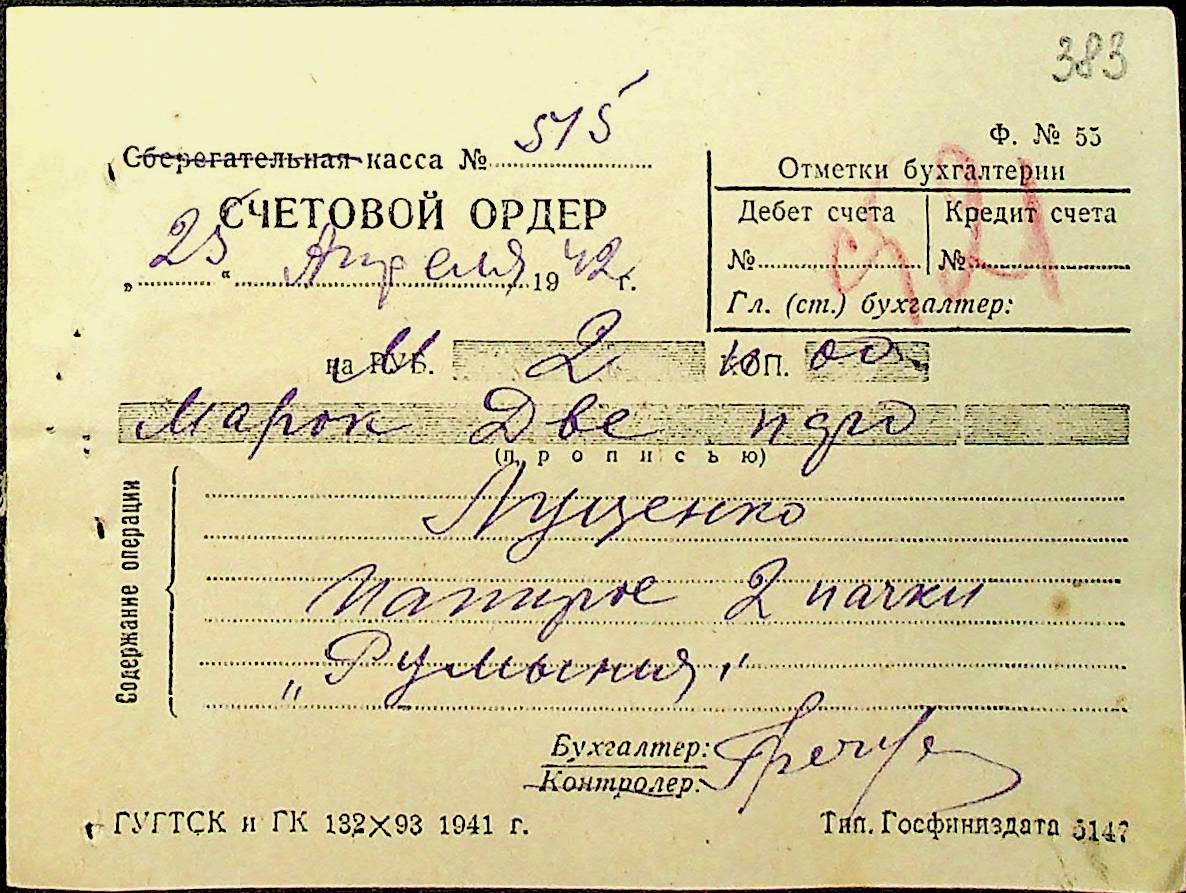 383
Ф. № 55
Сберегательная касса № 515
Отметки бухгалтерии
СЧЕТОВОЙ ОРДЕР
Дебет счета Кредит счета
№ №
„25“ Апреля 1942 г.
Гл. (ст.) бухгалтер:
на РУБ. 2 КОП. 00
Марок Две
(прописью)
Содержание операции
Лущенко
Папирос 2 пачки
„Румыния“
Бухгалтер:
Контролер:
ГУГТСК и ГК 132×93 1941 г.
Тип. Госфиниздата 5147